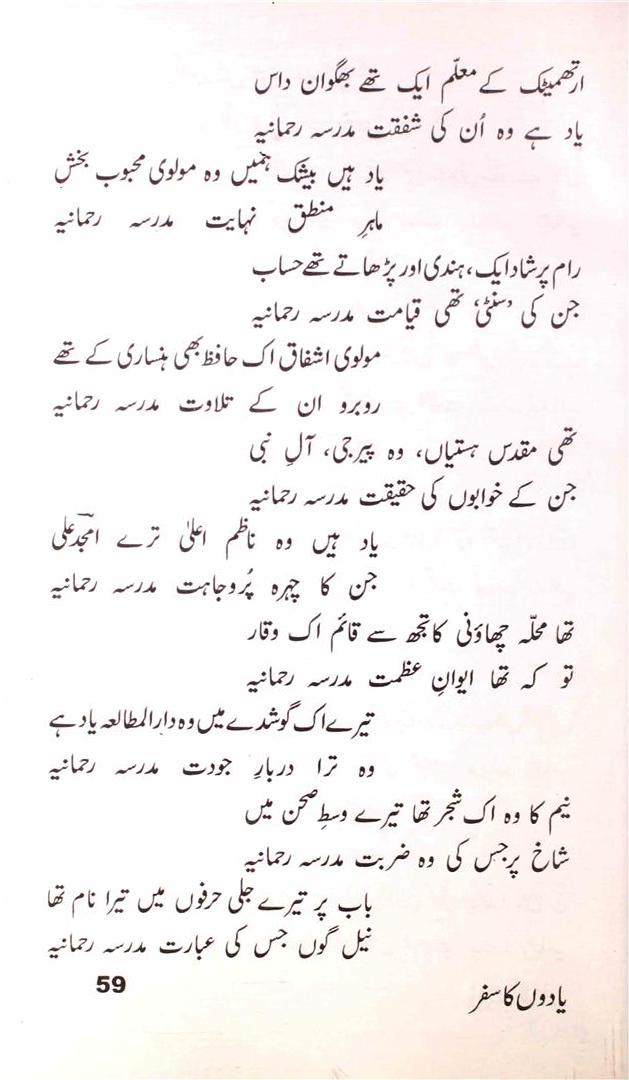 ارتھمیٹک کے معلّم ایک تھے بھگوان داس
یاد ہے وہ اُن کی شفقت مدرسہ رحمانیہ
یاد ہیں بیشک ہمیں وہ مولوی محبوب بخش
ماہرِ منطق نہایت مدرسہ رحمانیہ
رام پرشاد ایک، ہندی اور پڑھاتے تھے حساب
جن کی ’سنٹی‘ تھی قیامت مدرسہ رحمانیہ
مولوی اشفاق اک حافظ بھی ہنساری کے تھے
روبرو ان کے تلاوت مدرسہ رحمانیہ
تھی مقدس ہستیاں، وہ پیرجی، آلِ نبی
جن کے خوابوں کی حقیقت مدرسہ رحمانیہ
یاد ہیں وہ ناظم اعلیٰ ترے امجد علی
جن کا چہرہ پُروجاہت مدرسہ رحمانیہ
تھا محلّہ چھاؤنی کا تجھ سے قائم اک وقار
تو کہ تھا ایوانِ عظمت مدرسہ رحمانیہ
تیرے اک گوشدے میں وہ دارالمطالعہ یاد ہے
وہ ترا دربارِ جودت مدرسہ رحمانیہ
نیم کا وہ اک شجر تھا تیرے وسطِ صحن میں
شاخ پر جس کی وہ ضربت مدرسہ رحمانیہ
باب پر تیرے جلی حرفوں میں تیرا نام تھا
نیل گوں جس کی عبارت مدرسہ رحمانیہ
یادوں کا سفر
59